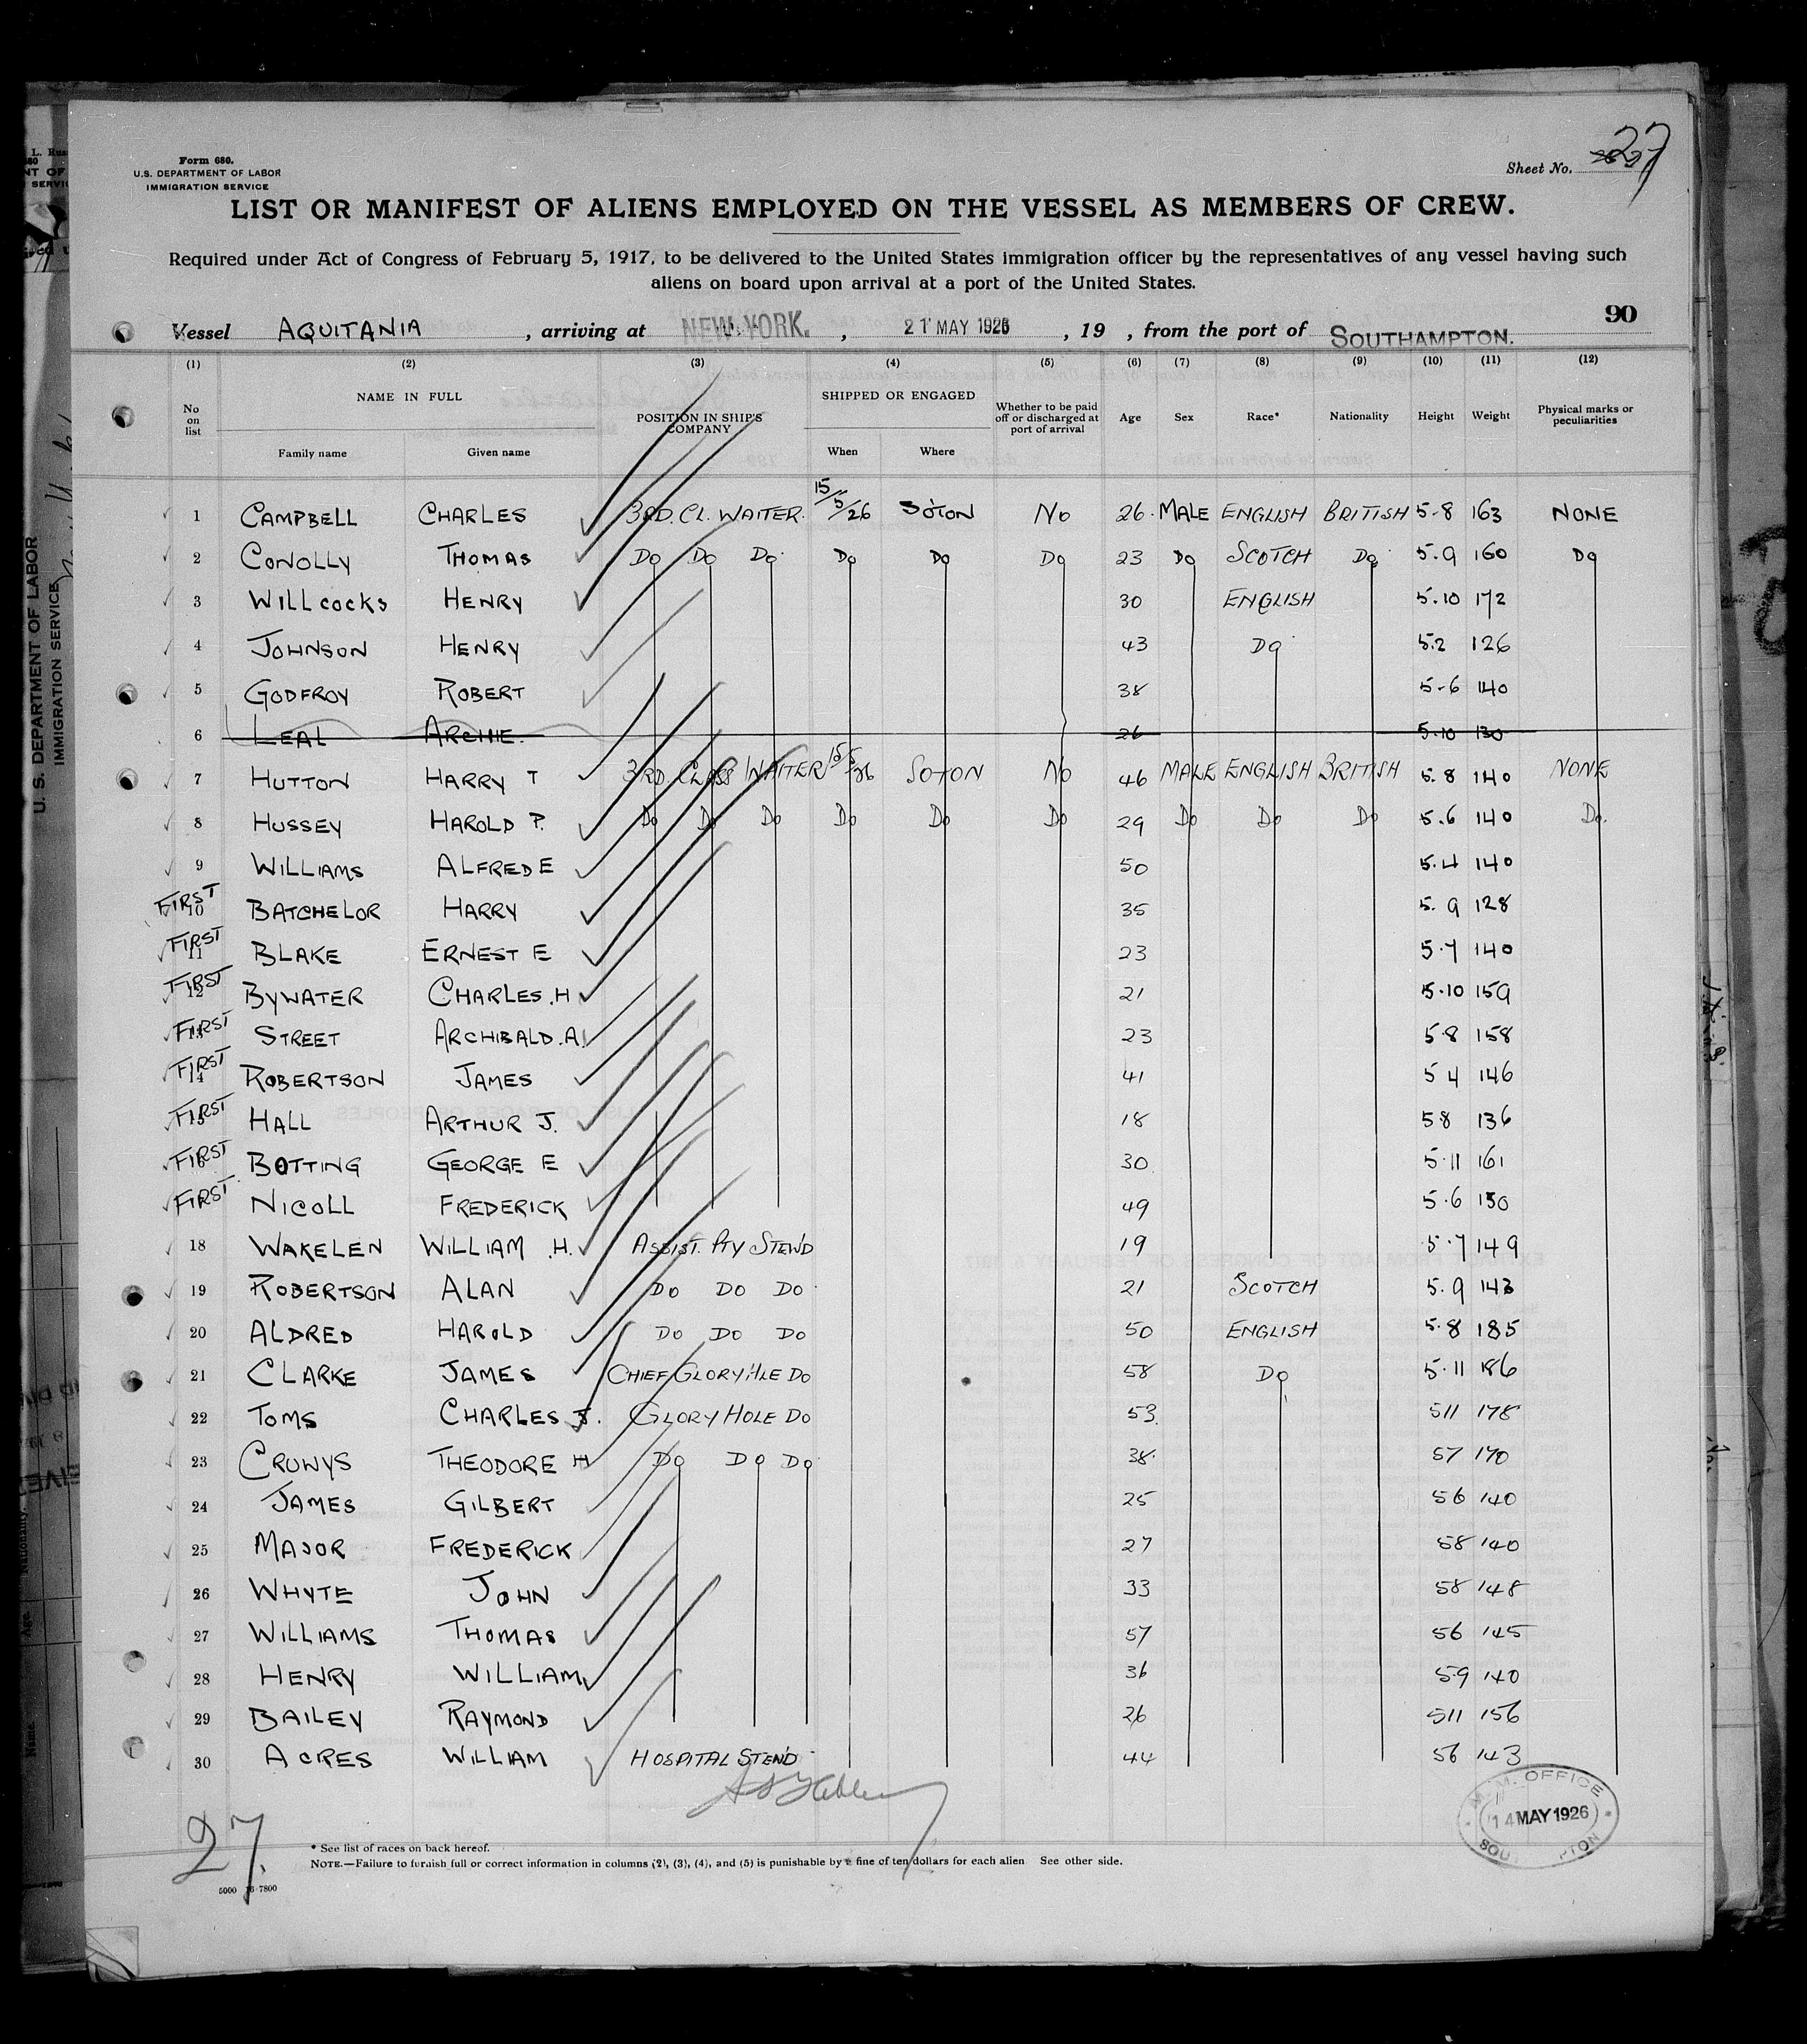 Form 680.
U.S. DEPARTMENT OF LABOR
IMMIGRATION SERVICE
Sheet No. 27
LIST OR MANIFEST OF ALIENS EMPLOYED ON THE VESSEL AS MEMBERS OF CREW.
Required under Act of Congress of February 5, 1917, to be delivered to the United States immigration officer by the representatives of any vessel having such
aliens on board upon arrival at a port of the United States.
90
Vessel AQUITANIA , arriving at NEW YORK. , 21 MAY 1926 , 19 , from the port of SOUTHAMPTON.
(1) (2) (3) (4) (5) (6) (7) (8) (9) (10) (11) (12)
No on list NAME IN FULL Family name Given name POSITION IN SHIP'S COMPANY SHIPPED OR ENGAGED When Where Whether to be paid off or discharged at port of arrival Age Sex Race* Nationality Height Weight Physical marks or peculiarities
1 CAMPBELL CHARLES 3RD. CL. WAITER. 15/5/26 SOTON NO 26 MALE ENGLISH BRITISH 5-8 163 NONE
2 CONOLLY THOMAS DO DO DO DO DO DO 23 DO SCOTCH DO 5.9 160 DO
3 WILLCOCKS HENRY 30 ENGLISH 5.10 172
4 JOHNSON HENRY 43 DO 5.2 126
5 GODFROY ROBERT 38 5-6 140
6 LEAL ARCHIE. 26 5.10 130
7 HUTTON HARRY T 3RD CLASS WAITER 15/5/26 SOTON NO 46 MALE ENGLISH BRITISH 5.8 140 NONE
8 HUSSEY HAROLD P. DO DO DO DO DO DO 29 DO DO DO 5.6 140 DO.
9 WILLIAMS ALFRED E 50 5.4 140
FIRST 10 BATCHELOR HARRY 35 5.9 128
FIRST 11 BLAKE ERNEST E 23 5.7 140
FIRST 12 BYWATER CHARLES.H 21 5.10 159
FIRST 13 STREET ARCHIBALD.A. 23 5.8 158
FIRST 14 ROBERTSON JAMES 41 5 4 146
FIRST 15 HALL ARTHUR J. 18 5 8 136
FIRST 16 BOTTING GEORGE E 30 5.11 161
FIRST NICOLL FREDERICK 49 5.6 150
18 WAKELEN WILLIAM .H. ASSIST. PTY STEW'D 19 5.7 149
19 ROBERTSON ALAN DO DO DO 21 SCOTCH 5.9 143
20 ALDRED HAROLD DO DO DO 50 ENGLISH 5.8 185
21 CLARKE JAMES CHIEF GLORY H'LE DO 58 DO 5.11 186
22 TOMS CHARLES J. GLORY HOLE DO 53. 5 11 178
23 CRUWYS THEODORE H DO DO DO 38. 5 7 170
24 JAMES GILBERT 25 5 6 140
25 MAJOR FREDERICK 27 5 8 140
26 WHYTE JOHN 33 5 8 148
27 WILLIAMS THOMAS 57 5 6 145
28 HENRY WILLIAM 36 5.9 140
29 BAILEY RAYMOND 26 5 11 156
30 ACRES WILLIAM HOSPITAL STEW'D 44 5 6 143
14 MAY 1926
27.
* See list of races on back hereof.
NOTE.—Failure to furnish full or correct information in columns (2), (3), (4), and (5) is punishable by a fine of ten dollars for each alien See other side.
U. S. DEPARTMENT OF LABOR
IMMIGRATION SERVICE